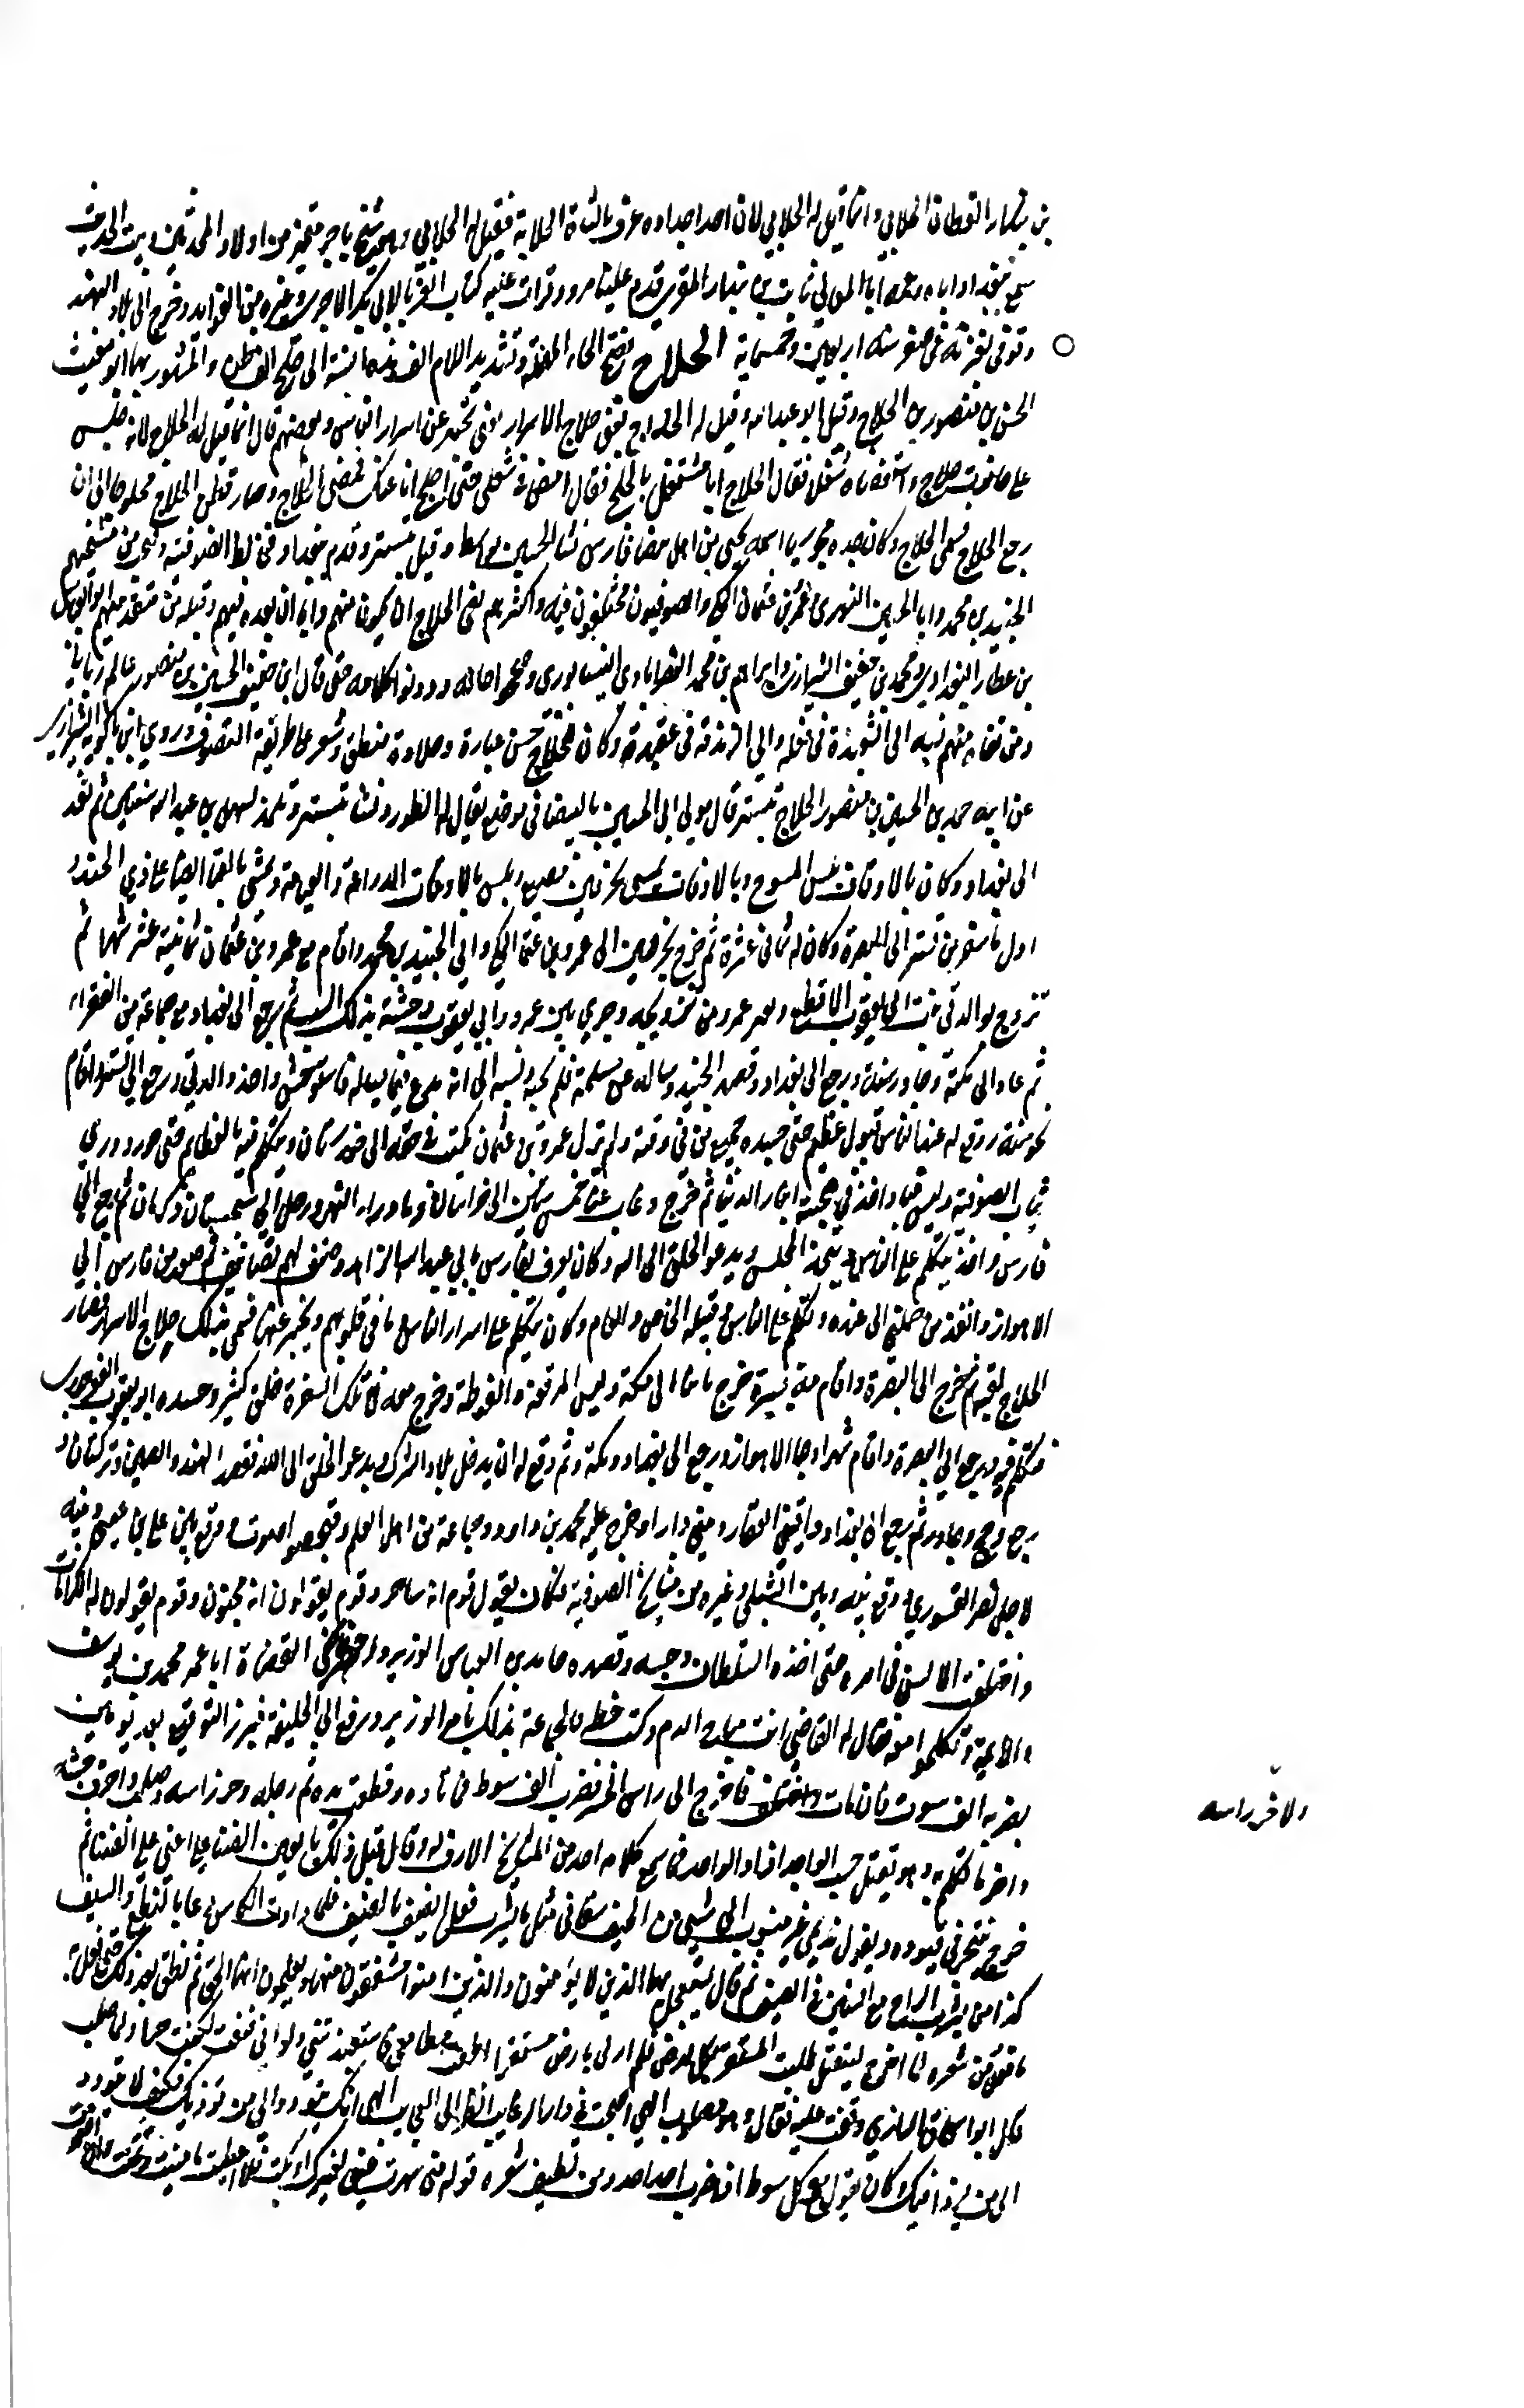 بن بندار القطان الحلابي وانما قيل له الحلابي لان احد اجداده عرف بالشاة الحلابة فقيل له الحلابي وهو شيخ تاجر متميز من اولاد المحدثين وبيت الحديث
سمع ببغداد اباه وعمه ابا المعالي ثابت بن بندار المقرى قدم علينا مرو وقرات عليه كتاب الغربا لابي بكر الاجرى وغيره من الفوايد وخرج الى بلاد الهند
وتوفى بغزنة في صفر سنة اربعين وخمسماية الحلاج بفتح الحاء المهملة وتشديد اللام الف هذه النسبة الى حلج القطن والمشهور بها ابو مغيث
الحسين بن منصور بن الحلاج وقيل ابو عبد الله وقيل له الحلاج يعنى حلاج الاسرار يعنى يخبر عن اسرار الناس وبعضهم قال انما قيل له الحلاج لانه جلس
على حانوت حلاج واستقضاه شغلا فقال الحلاج انا مشتغل بالحلج فقال امض في شغلى حتى احلج انا عنك فمضى الحلاج وصار قطن الحلاج محلوجا الى ان
رجع الحلاج فسمى الحلاج وكان جده مجوسيا اسمه محمى من اهل بيضا فارس نشا الحسين بواسط وقيل بتستر وقدم بغداد فخالط الصوفية وصحب من مشيختهم
الجنيد بن محمد وابا الحسين النورى وعمرو بن عثمان المكي والصوفيون مختلفون فيه واكثرهم نفى الحلاج ان يكون منهم وابا ان يعده فيهم وقبله من متقدميهم ابو العباس
بن عطا البغدادى ومحمد بن خفيف الشيرازى وابراهيم بن محمد النصراباذى النيسابورى وصححوا حاله ودونوا كلامه حتى قال ابن خفيف الحسين بن منصور عالم رباني
ومن نفاه منهم نسبه الى الشعبذة في فعله والى الزندقة في عقيدته وكان للحلاج حسن عبارة وحلاوة منطق وشعر على طريقة التصوف وروى ابن باكويه الشيرازى
عن ابنه حمد بن الحسين بن منصور الحلاج بتستر قال مولد ابى الحسين بالبيضا في موضع يقال له الطور ونشا بتستر وتلمذ لسهل بن عبد الله سنتين ثم صعد
الى بغداد وكان بالاوقات يلبس المسوح وبالاوقات يمشى بخرقتين مصبغ ويلبس بالاوقات الدراعة والعمامة ويمشى بالقبا ايضا على زي الجند و
اول ما سافر من تستر الى البصرة وكان له ثماني عشرة ثم خرج بخرقتين الى عمرو بن عثمان المكي والي الجنيد بن محمد واقام مع عمرو بن عثمان ثمانية عشر شهرا ثم
تزوج بوالدتي بنت ابي يعقوب الاقطع وتغير عمرو من تزويجه وجرى بين عمرو وابي يعقوب وحشة بذلك السبب ثم رجع الى بغداد مع جماعة من الفقراء
ثم عاد الى مكة وجاور سنة ورجع الى بغداد وقصد الجنيد وساله عن مسئلة فلم يجبه ونسبه الى انه مدع فيما يساله فاستوحش واخذ والدتي ورجع الى تستر واقام
نحو سنة ووقع له عند الناس قبول عظيم حتى حسده جميع من في وقته ولم يزل عمرو بن عثمان يكتب في حقه الى خوزستان ويتكلم فيه بالعظايم حتى حرد ورمى
ثياب الصوفية ولبس قبا واخذ في صحبة ابنا الدنيا ثم خرج وغاب عنا خمس سنين الى خراسان وما وراء النهر ورحل الى سجستان وكرمان ثم رجع الي
فارس واخذ يتكلم على الناس ويتخذ المجلس ويدعو الخلق الى الله وكان يعرف بفارس بابي عبد الله الزاهد وصنف لهم تصانيف ثم صعد من فارس الي
الاهواز وانفذ من حملني الى عنده وتكلم على الناس وقبله الخاص والعام وكان يتكلم على اسرار الناس وما في قلوبهم ويخبر عنها فسمي بذلك حلاج الاسرار فصار
الحلاج لقبه ثم خرج الى البصرة واقام مدة يسيرة خرج ثانيا الى مكة ولبس المرقعة والفوطة وخرج معه في تلك السفرة خلق كثير وحسده ابو يعقوب النهرجورى
فتكلم فيه ورجع الي البصرة واقام شهرا وجا الاهواز ورجع الى بغداد ومكة وثم وقع له ان يدخل بلاد الشرك ويدعو الخلق الى الله فقصد الهند والصين وتركستان و
رجع وحج وجاور ثم رجع الى بغداد واقتنى العقار وبنى دارا وخرج عليه محمد بن داود وجماعة من اهل العلم وقبحوا صورته ووقع بين علي بن عيسى وبينه
لاجل نصر القشورى ووقع بينه وبين الشبلى وغيره من مشايخ الصوفية فكان يقول قوم انه ساحر وقوم يقولون انه مجنون وقوم يقولون له الكرامات
واختلفت الالسن في امره حتى اخذه السلطان وحبسه وقصده حامد بن العباس الوزير واحضر القضاة ابا عمر محمد بن يوسف
والايمة وتكلموا معه فقال له القاضى انت مباح الدم وكتب خطه والجماعة بذلك بامر الوزير ورفع الى الخليفة فبرز التوقيع بعد يومين
بضربه الف سوط فان مات والا فاخرج الى راس الجسر فضرب الف سوط فما تاوه وقطعت يده ثم رجله وحز راسه وصلب واحرق جثته
واخر ما تكلم به وهو يقتل حسب الواجد افراد الواحد فما سمع كلامه احد من المشايخ الا رق له وقال قبل ذلك يا معين الضنا علي اعنى على الضنا ثم
خرج يتبختر في قيوده ويقول نديمى غير منسوب الى شيء من الحيف سقانى مثل ما يشرب فعل الضيف بالضيف فلما دارت الكاس دعا بالنطع والسيف
كذا من يشرب الراح مع التنين في الصيف ثم قال يستعجل بها الذين لا يؤمنون والذين امنوا مشفقون منها ويعلمون انها الحق ثم ما نطق بعد ذلك حتى فعل به
ما فعل ومن شعره لما اخرج ليقتل طلبت المستقر بكل ارض فلم ار لي بارض مستقرا اطعت مطامعى فاستعبدتني ولو اني قنعت لكنت حرا ولما صلب
قال ابو اسحاق الرازي وقفت عليه فقال وهو مصلوب الهي اصبحت في دار الرغايب انظر الى العجايب الهى انك تتودد الى من يؤذيك فكيف لا تتودد
الى من يؤذا فيك وكان يقول مع كل سوط اذا ضرب احد احد ومن لطيف شعره قوله متى سهرت عينى لغيرك او بكت فلا اعطيت ما منيت وتمنت وان اضمرت
والا فحز راسه